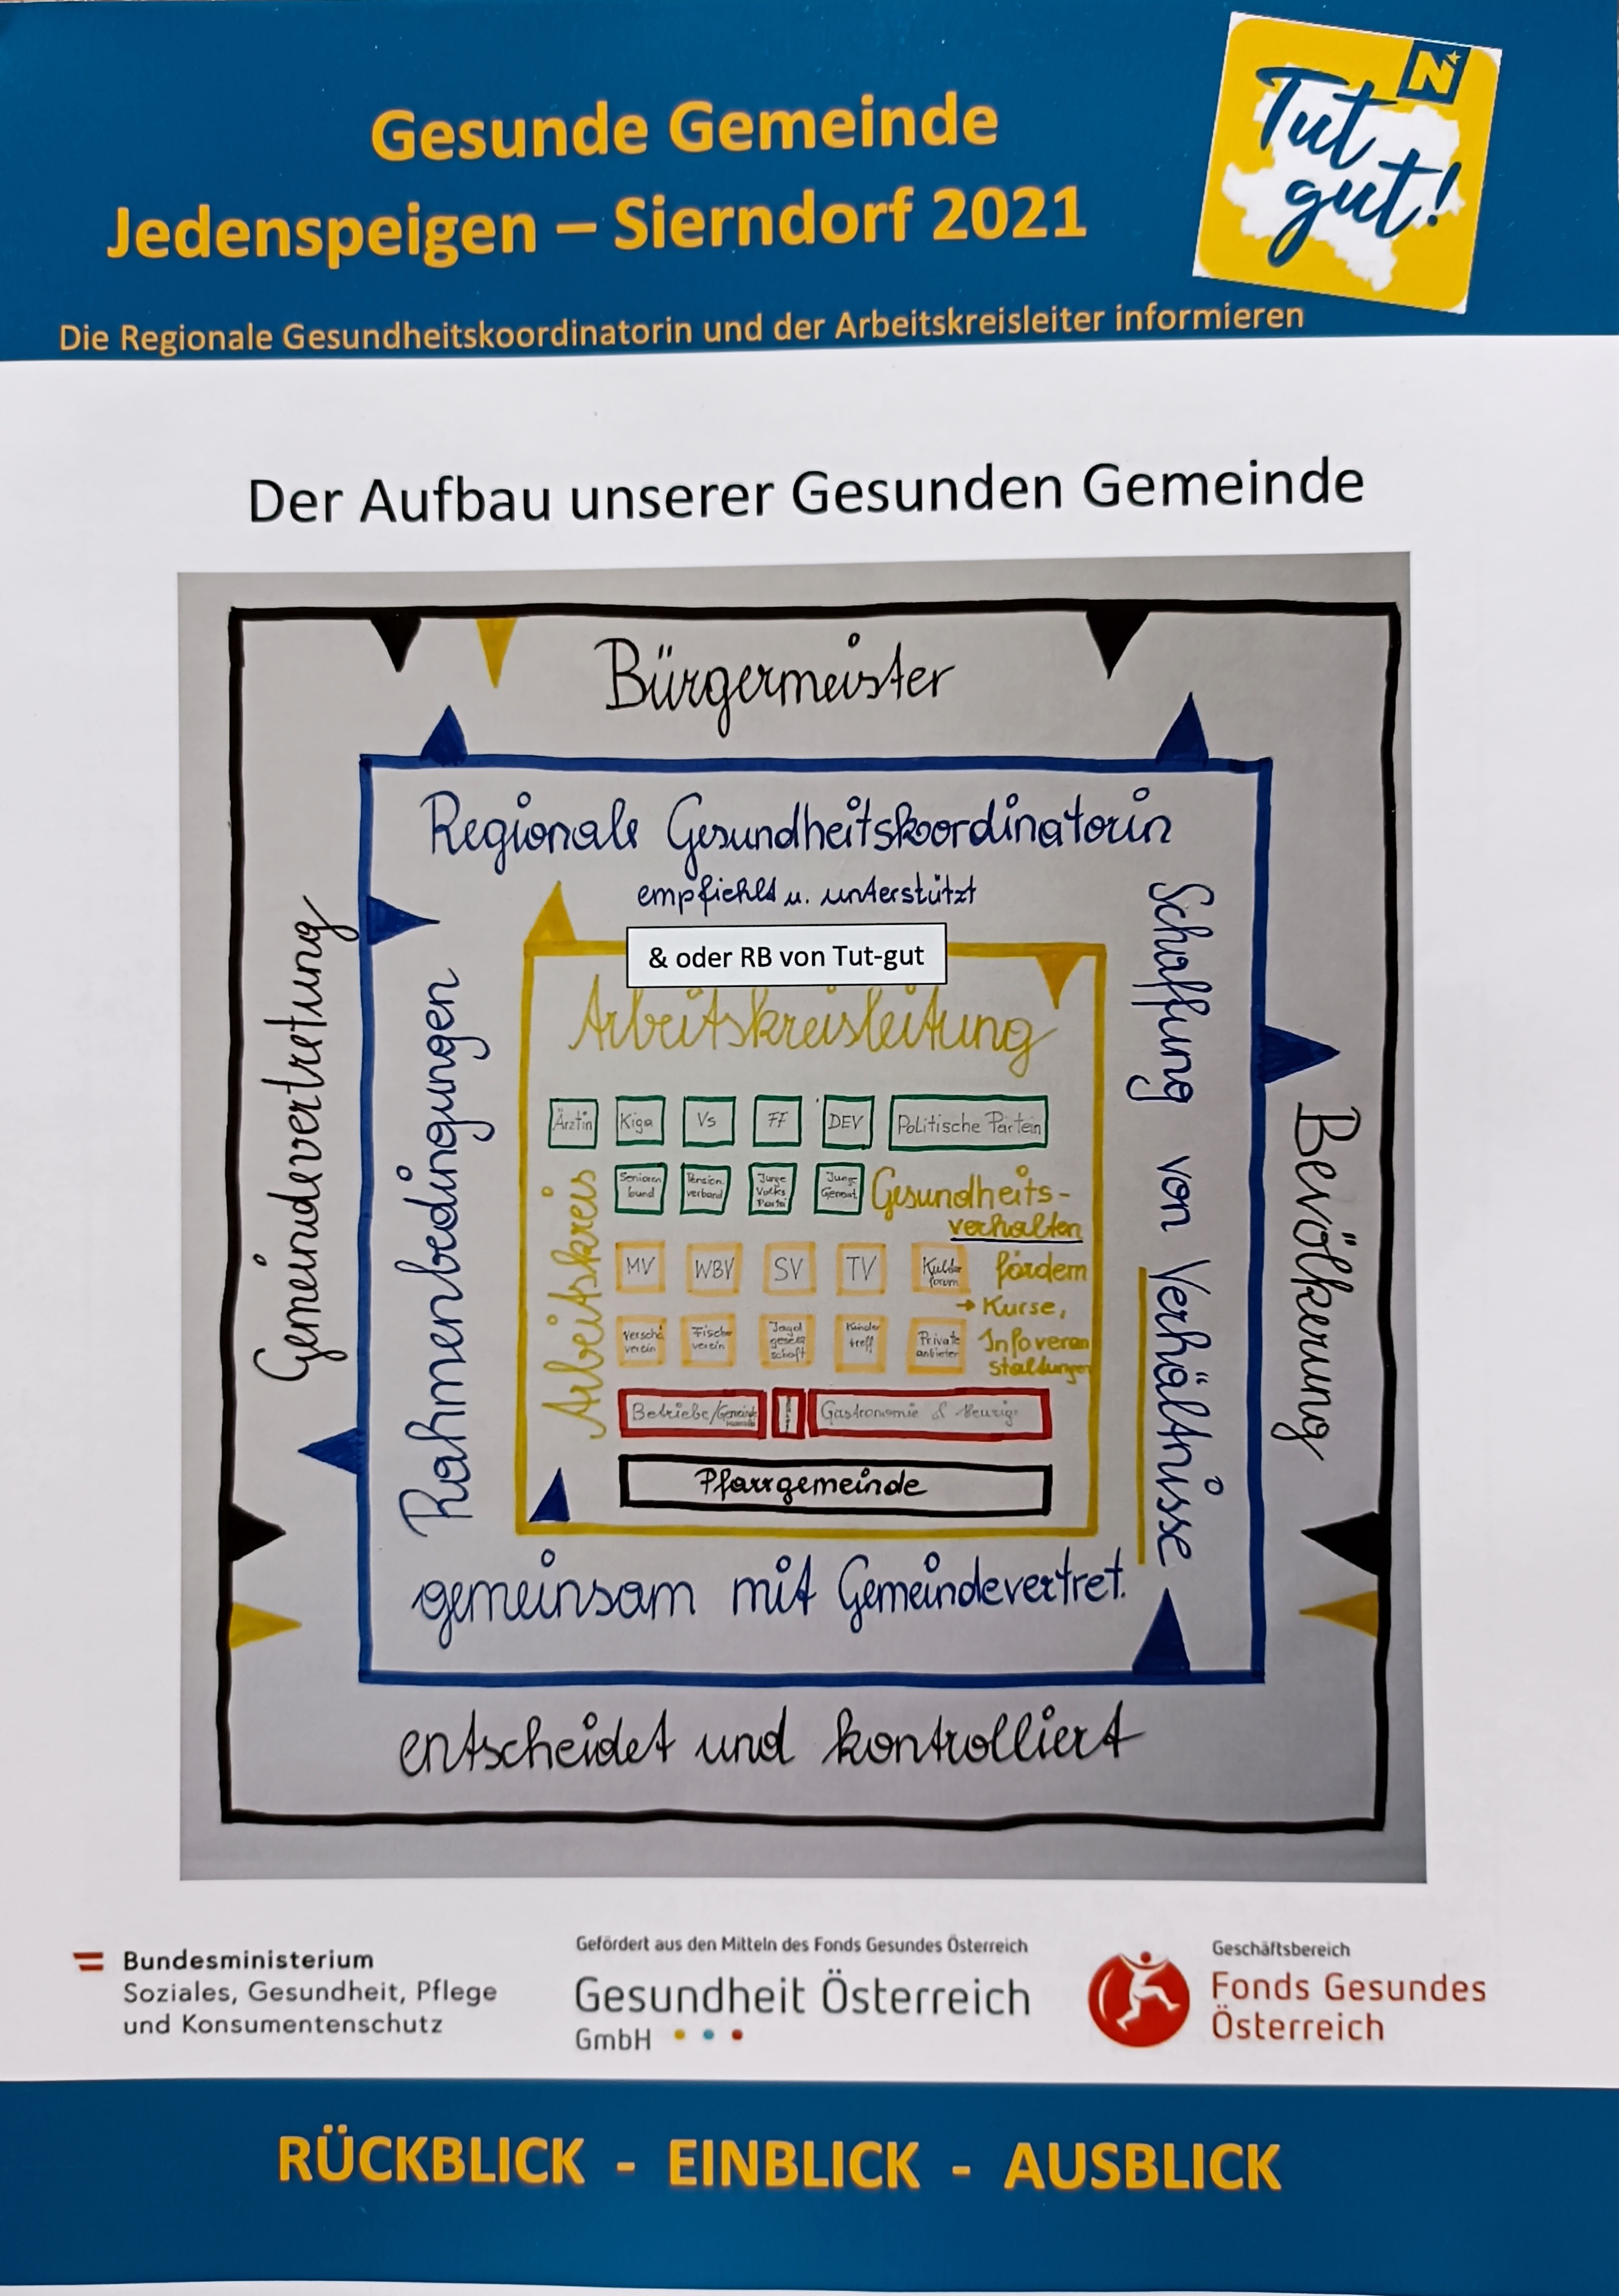 N
Tut
gut!
Gesunde Gemeinde
Jedenspeigen – Sierndorf 2021
Die Regionale Gesundheitskoordinatorin und der Arbeitskreisleiter informieren
Der Aufbau unserer Gesunden Gemeinde
Bürgermeister
Gemeindevertretung
Bevölkerung
Regionale Gesundheitskoordinatorin
empfiehlt u. unterstützt
& oder RB von Tut-gut
Rahmenbedingungen
Schaffung von Verhältnisse
Arbeitskreisleitung
Arbeitskreis
Ärztin
Kiga
Vs
FF
DEV
Politische Partein
Senioren
bund
Pension.
verband
Junge
Volks
Partei
Jung
Generat.
Gesundheits-
verhalten
fördern
→ Kurse,
Infoveran
staltungen
MV
WBV
SV
TV
Kultur
forum
Verschö
verein
Fischer
verein
Jagd
gesell
schaft
Kinder
treff
Private
anbieter
Betriebe/Gemeinde
Gastronomie & Heurige
Pfarrgemeinde
gemeinsam mit Gemeindevertret.
entscheidet und kontrolliert
Bundesministerium
Soziales, Gesundheit, Pflege
und Konsumentenschutz
Gefördert aus den Mitteln des Fonds Gesundes Österreich
Gesundheit Österreich
GmbH
Geschäftsbereich
Fonds Gesundes
Österreich
RÜCKBLICK - EINBLICK - AUSBLICK